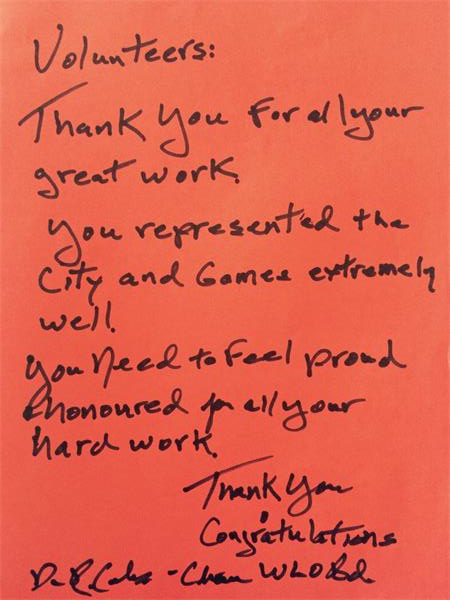 Volunteers:
Thank You for all your
great work.
You represented the
City and Games extremely
well.
You Need to Feel proud
& honoured for all your
hard work.
Thank You
&
Congratulations
- Chair